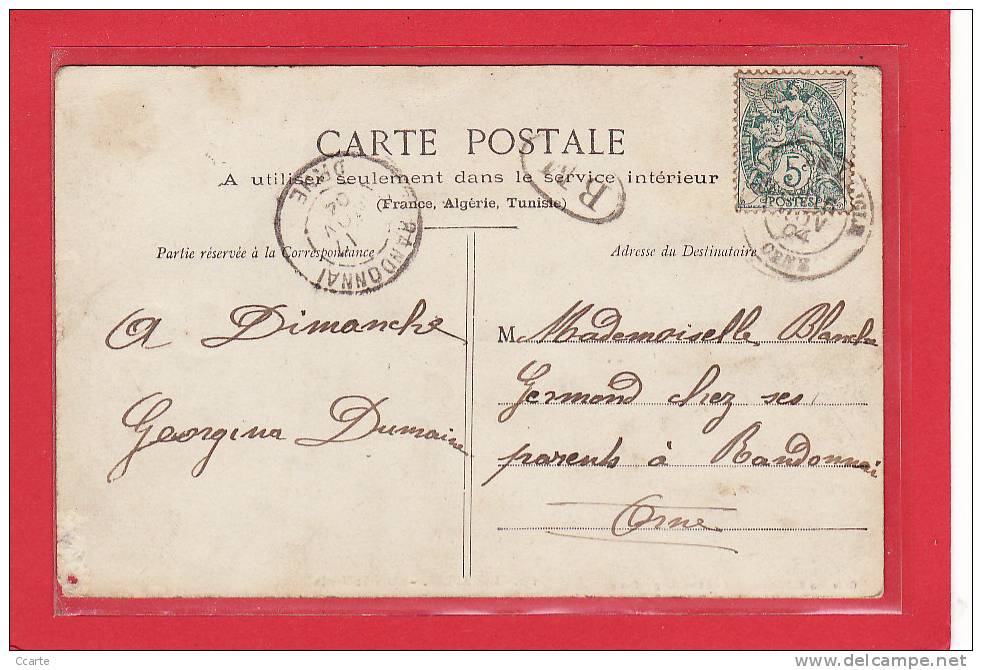 CARTE POSTALE
A utiliser seulement dans le service intérieur
(France, Algérie, Tunisie)
Partie réservée à la Correspondance
Adresse du Destinataire
RANDONNAI
ORNE
NOV
04
B
5c
POSTES
AIGLE
NOV
04
ORNE
A Dimanche
Georgina Dumaine
M Mademoiselle Blanche
Germond chez ses
parents à Randonnai
Orne
Ccarte
www.delcampe.net